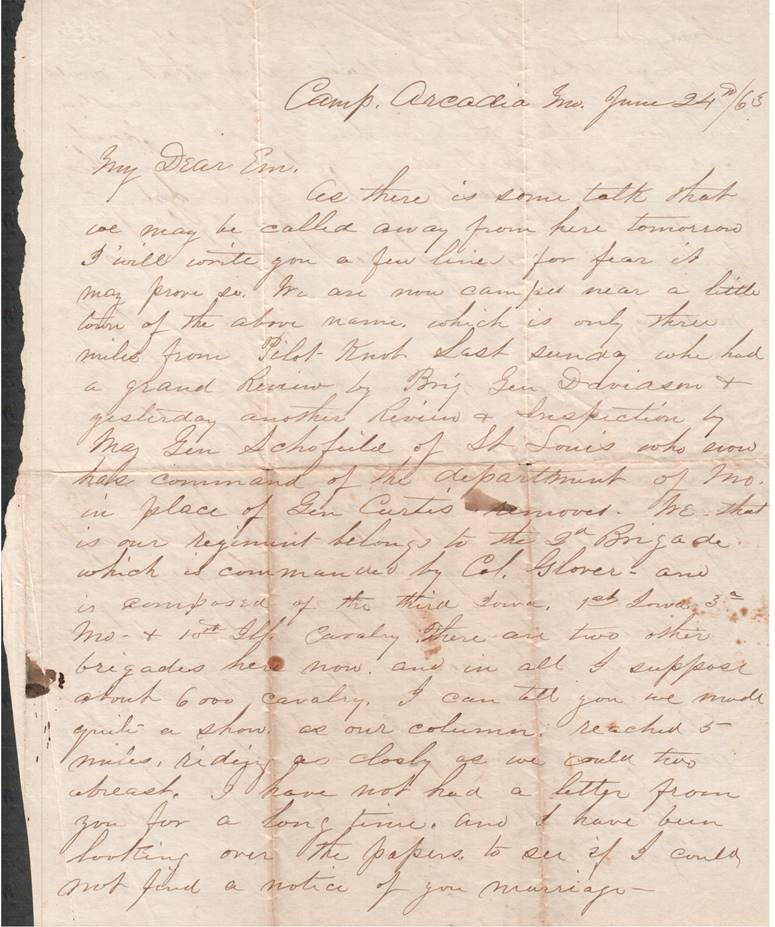 Camp. Arcadia Mo. June 24th/63
My Dear Em.
As there is some talk that
we may be called away from here tomorrow
I will write you a few lines for fear it
may prove so. We are now camped near a little
town of the above name. which is only three
miles from Pilot Knot Last sunday whe had
a grand Review by Brig Gen Davidson &
yesterday another Review & Inspection by
Maj Gen Schofield of St Louis who now
has command of the department of Mo.
in place of Gen Curtis removed. We - that
is our regiment belongs to the 2d Brigade
which is commanded by Col. Glover - and
is composed of the third Iowa. 1st Iowa 3d
Mo - & 10th Ill. Cavalry There are two other
brigades here now. and in all I suppose
about 6000 cavalry. I can tell you we made
quite a show. as our column. reached 5
miles. riding as closly as we could two
abreast. I have not had a letter from
you for a long time. and I have been
looking over the papers. to see if I could
not find a notice of you marriage -